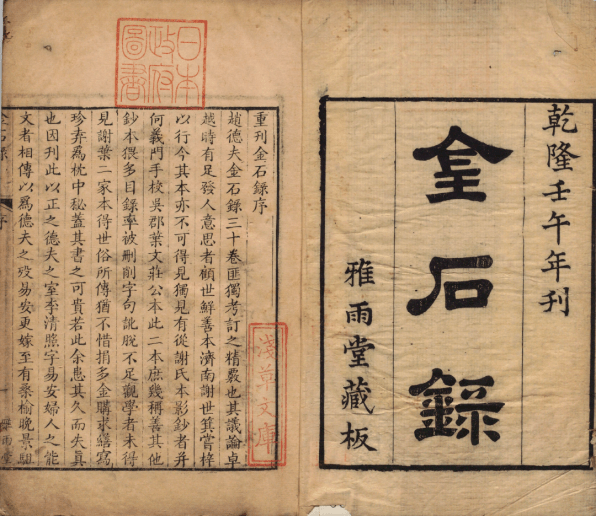 乾隆壬午年刊
金石錄
雅雨堂藏板
重刊金石錄序
趙德夫金石錄三十卷匪獨考訂之精覈也其議論卓
越時有足發人意思者顧世鮮善本濟南謝世箕嘗梓
以行今其本亦不可得見獨見有從謝氏本影鈔者并
何義門手校吳郡葉文莊公本此二本庶幾稱善其他
鈔本猥多目錄率被刪削字句訛脫不足觀學者未得
見謝葉二家本得世俗所傳猶不惜捐多金購求繕寫
珍弆爲枕中秘蓋其書之可貴若此余患其久而失真
也因刊此以正之德夫之室李清照字易安婦人之能
文者相傳以爲德夫之歿易安更嫁至有桑榆晚景駔
金石錄
序
雅雨堂
日本
政府
圖書
淺草文庫